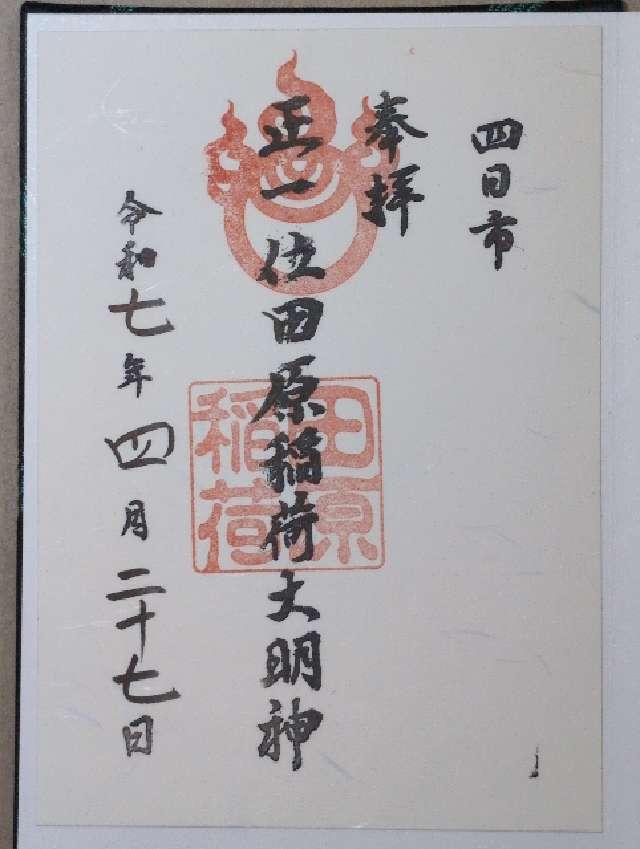 四日市
奉拝
正一位田原稲荷大明神
田原
稲荷
令和七年四月二十七日